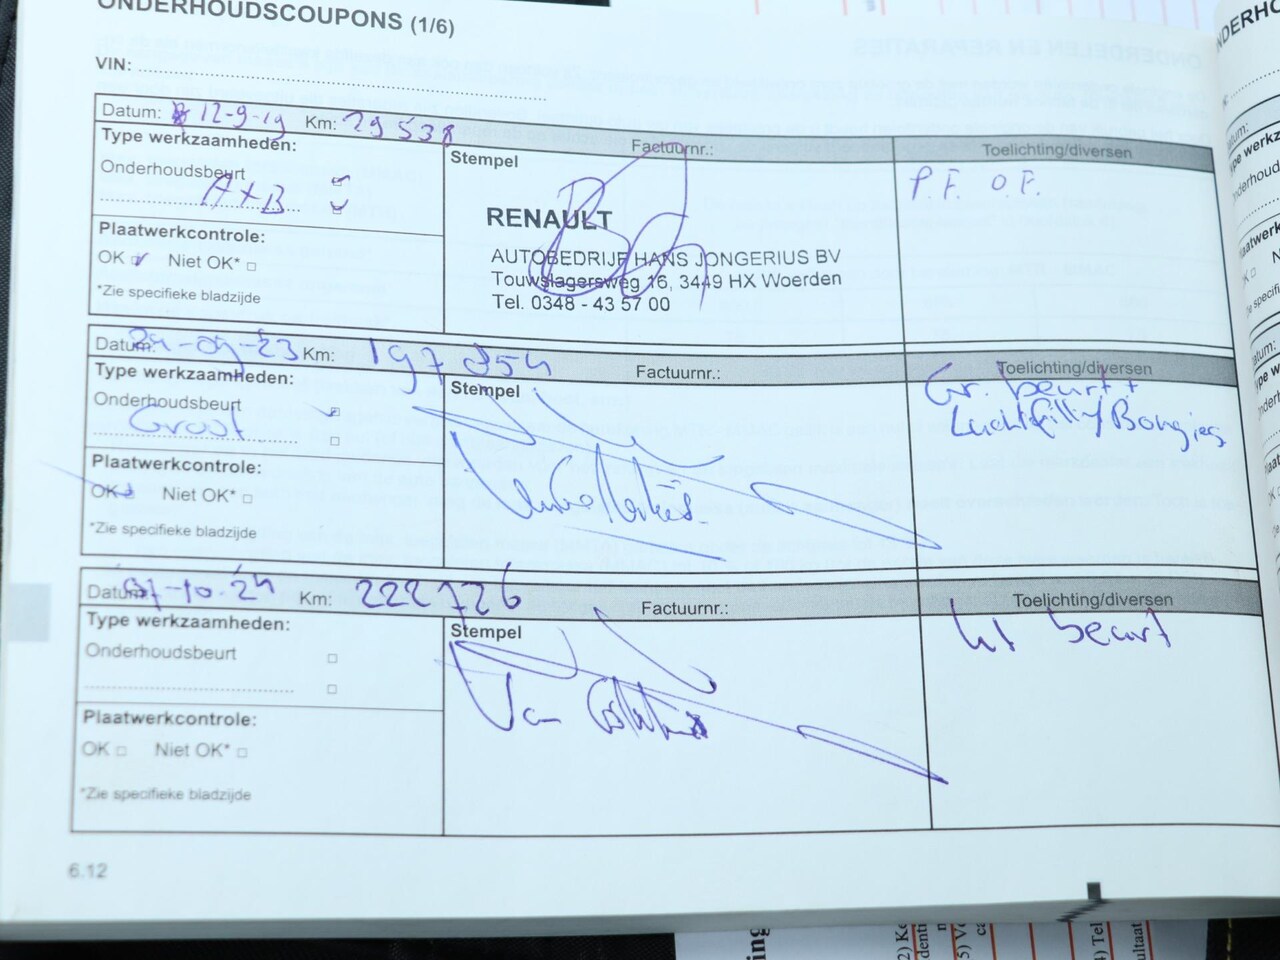 ONDERHOUDSCOUPONS (1/6)
VIN:
Datum: 12-9-19 Km: 29538
Type werkzaamheden:
Stempel
Factuurnr.:
Toelichting/diversen
Onderhoudsbeurt
A+B
P.F. O.F.
RENAULT
AUTOBEDRIJF HANS JONGERIUS BV
Touwslagersweg 16, 3449 HX Woerden
Tel. 0348 - 43 57 00
Plaatwerkcontrole:
OK Niet OK*
*Zie specifieke bladzijde
Datum: 24-09-23 Km: 197 854
Type werkzaamheden:
Stempel
Factuurnr.:
Toelichting/diversen
Onderhoudsbeurt
Groot
Gr. beurt +
Luchtfilter/Bougies
Plaatwerkcontrole:
OK Niet OK*
*Zie specifieke bladzijde
Datum: 07-10-24 Km: 222726
Type werkzaamheden:
Stempel
Factuurnr.:
Toelichting/diversen
Onderhoudsbeurt
beurt
Plaatwerkcontrole:
OK Niet OK*
*Zie specifieke bladzijde
6.12